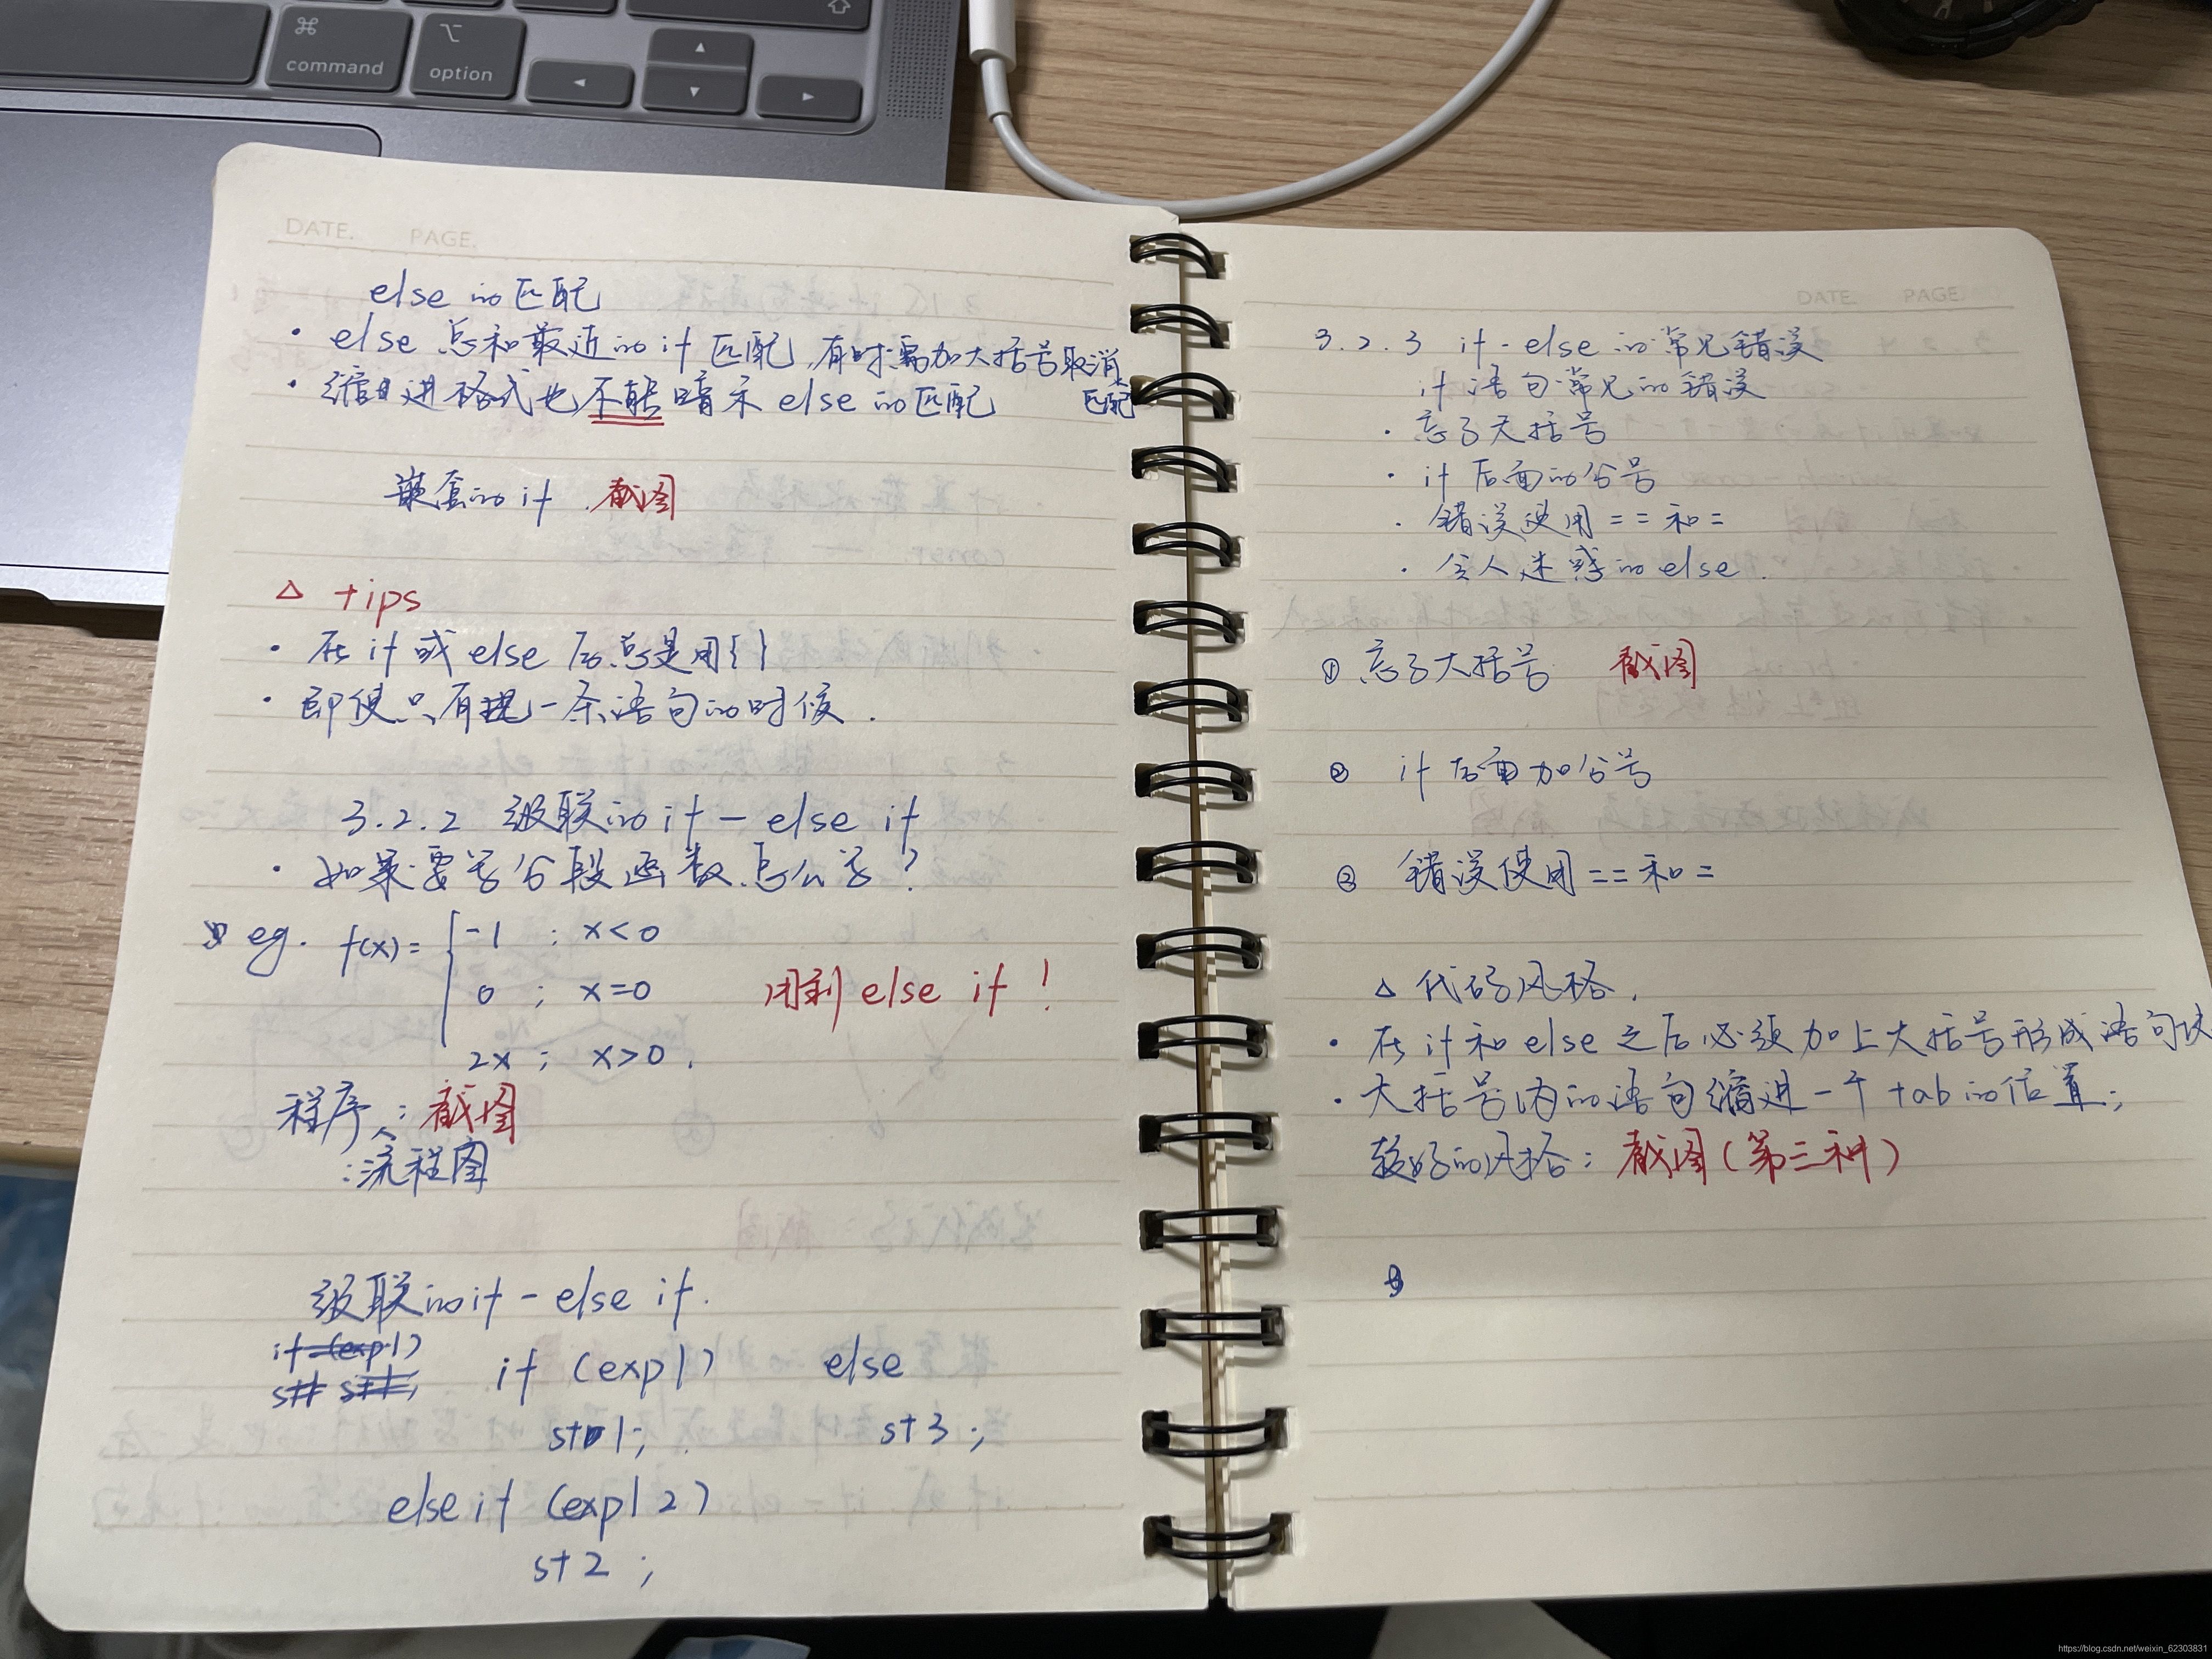 command
option
DATE. PAGE.
else的匹配
· else 总和最近的if 匹配,有时需加大括号取消
匹配
· 缩进格式也不能暗示 else的匹配
嵌套的if . 截图
△ tips
· 在 if 或 else 后总是用{}
· 即使只有一条语句的时候.
3.2.2 级联的if-else if
· 如果要写分段函数怎么写?
eg. f(x)= { -1 ; x<0
0 ; x=0 用到 else if !
2x ; x>0 .
程序:截图
:流程图
级联的if-else if.
if (exp1)
if (exp1) else
st1; st3;
else if (exp12)
st2;
DATE. PAGE.
3.2.3 if-else的常见错误
if 语句常见的错误
· 忘了大括号
· if 后面的分号
· 错误使用==和=
· 令人迷惑的else.
① 忘了大括号 截图
② if 后面加分号
③ 错误使用==和=
△ 代码风格.
· 在if和else之后必须加上大括号形成语句块
· 大括号内的语句缩进一个tab的位置;
较好的风格:截图(第三种)
https://blog.csdn.net/weixin_62303831